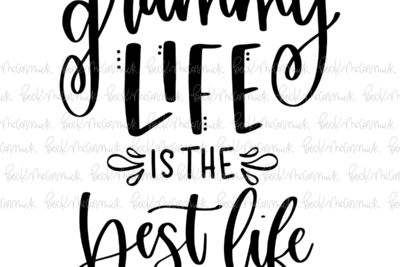 grammy
LIFE
IS THE
best life